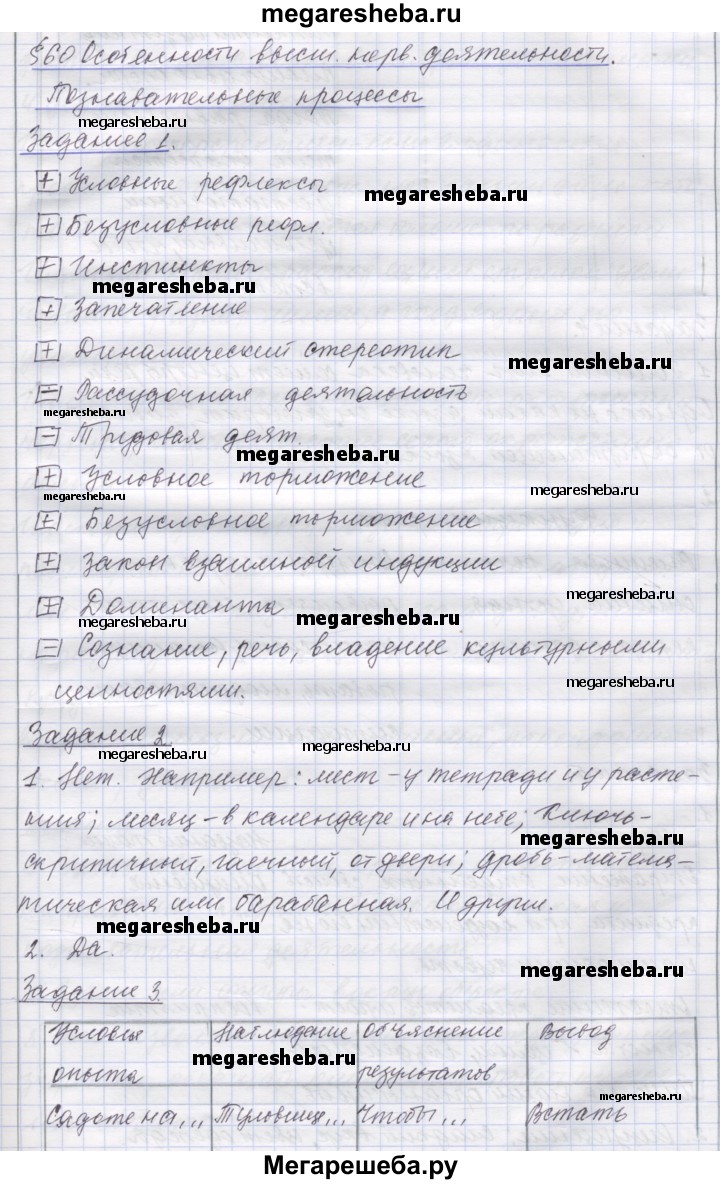 megaresheba.ru
§60 Особенности высш. нерв. деятельности.
Познавательные процессы
megaresheba.ru
Задание 1.
+ Условные рефлексы
megaresheba.ru
+ Безусловные рефл.
+ Инстинкты
megaresheba.ru
+ Запечатление
+ Динамический стереотип
megaresheba.ru
− Рассудочная деятельность
megaresheba.ru
− Трудовая деят.
megaresheba.ru
+ Условное торможение
megaresheba.ru
megaresheba.ru
+ Безусловное торможение
+ Закон взаимной индукции
megaresheba.ru
+ Доминанта
megaresheba.ru
− Сознание, речь, владение культурными
ценностями.
megaresheba.ru
Задание 2
megaresheba.ru
megaresheba.ru
1. Нет. Например: лист – у тетради и у расте-
ния; месяц – в календаре и на небе; ключ-
megaresheba.ru
скрипичный, гаечный, от двери; дробь – матема-
тическая или барабанная. И другие.
megaresheba.ru
2. Да.
megaresheba.ru
Задание 3.
Условия Наблюдение Объяснение Вывод
megaresheba.ru
опыта результатов
megaresheba.ru
Сядьте на... Туловище... Чтобы... Встать
Мегарешеба.ру